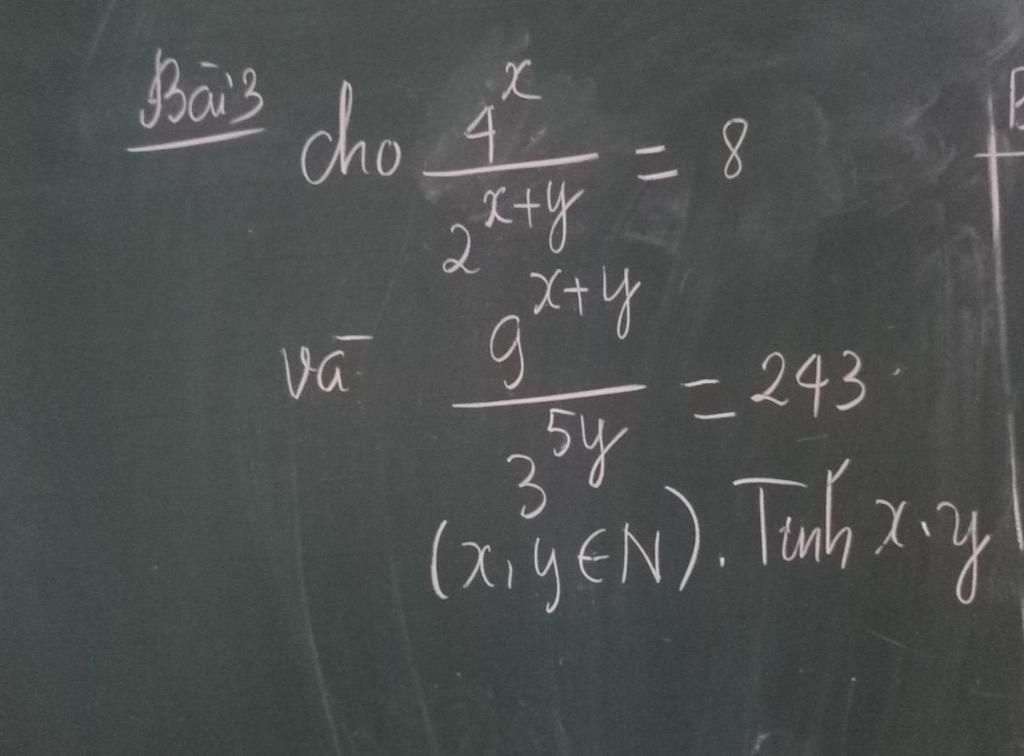 Bài 3 cho 4^x / 2^(x+y) = 8
và 9^(x+y) / 3^(5y) = 243
(x, y ∈ N). Tính x.y